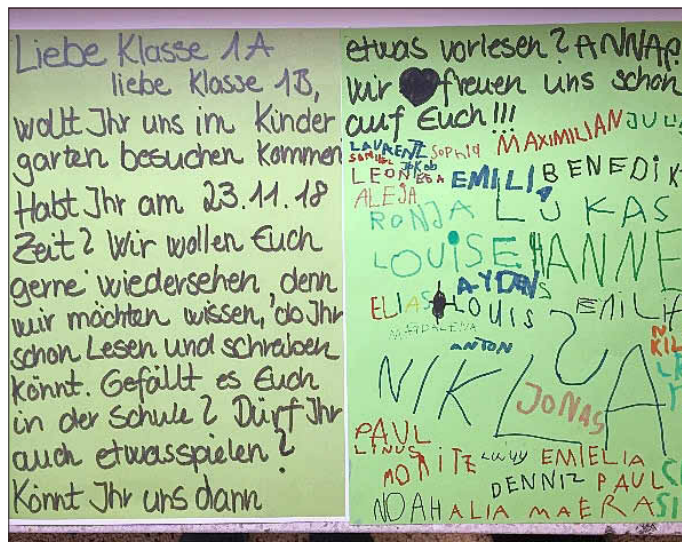 Liebe Klasse 1A
liebe Klasse 1B,
wollt Ihr uns im Kinder
garten besuchen kommen
Habt Ihr am 23.11.18
Zeit? Wir wollen Euch
gerne wiedersehen, denn
wir möchten wissen, ob Ihr
schon Lesen und schreiben
könnt. Gefällt es Euch
in der Schule? Dürft Ihr
auch etwas spielen?
Könnt Ihr uns dann
etwas vorlesen? ANNA
wir freuen uns schon
auf Euch!!!
MAXIMILIAN
LAURENZ Sophia
SAMUEL JAKOB
LEON EMILIA BENEDIK
ALEJA
RONJA LUKAS
LOUISE HANNE
AYDEN
ELIAS LOUIS EMILIA
MAGDALENA
ANTON
NIK
JONAS
PAUL
LINUS
MORITZ EMIELIA
DENNIZ PAUL
NOAH ALIA